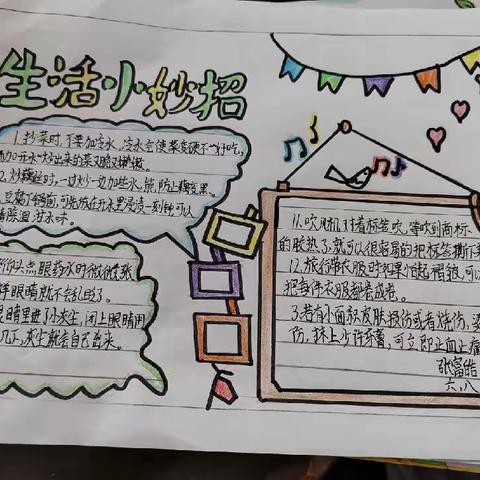 生活小妙招
1.抄菜时,不要加冷水,冷水会使菜变硬不"好吃,
而加开水"炒出来的菜又脆又嫩
2.炒藕丝时,一边炒一边加些水,能防止藕变黑。
豆腐下锅前,可先放在开水里浸渍一刻钟,可以
清除泔水味。
头,点眼药水时微微张
样眼睛就不会乱眨了。
眼睛里进小灰尘,闭上眼睛用
几下,灰尘就会自己出来。
11.吹风机对着标签吹,等吹到商标
的胶热了,就可以很容易的把标签撕下来
12.旅行带衣服时如果怕起褶皱,可以
把每件衣服都卷成卷。
3.若有小面积皮肤损伤或者烧伤、烫
伤,抹上少许牙膏,可立即止血止痛
张富皓
六.八